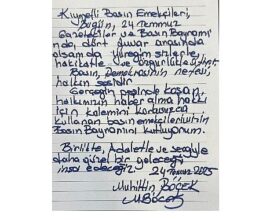 Kıymetli Basın Emekçileri,
Bugün, 24 Temmuz
Gazeteciler ve Basın Bayramı
nda, dört duvar arasında
olsam da yüreğim sizlerle,
hakikatle ve özgürlükle
Basın, Demokrasinin nefesi,
halkın sesidir
Gerçeğin peşinde koşan,
halkımızın haber alma hakkı
için kalemini korkusuzca
kullanan basın emekçilerimizin
Basın Bayramını kutluyorum.
Birlikte, Adaletle ve sevgiyle
daha güzel bir geleceği
inşa edeceğiz. 24 Temmuz 2025
Muhittin BÖCEK
MBöcek